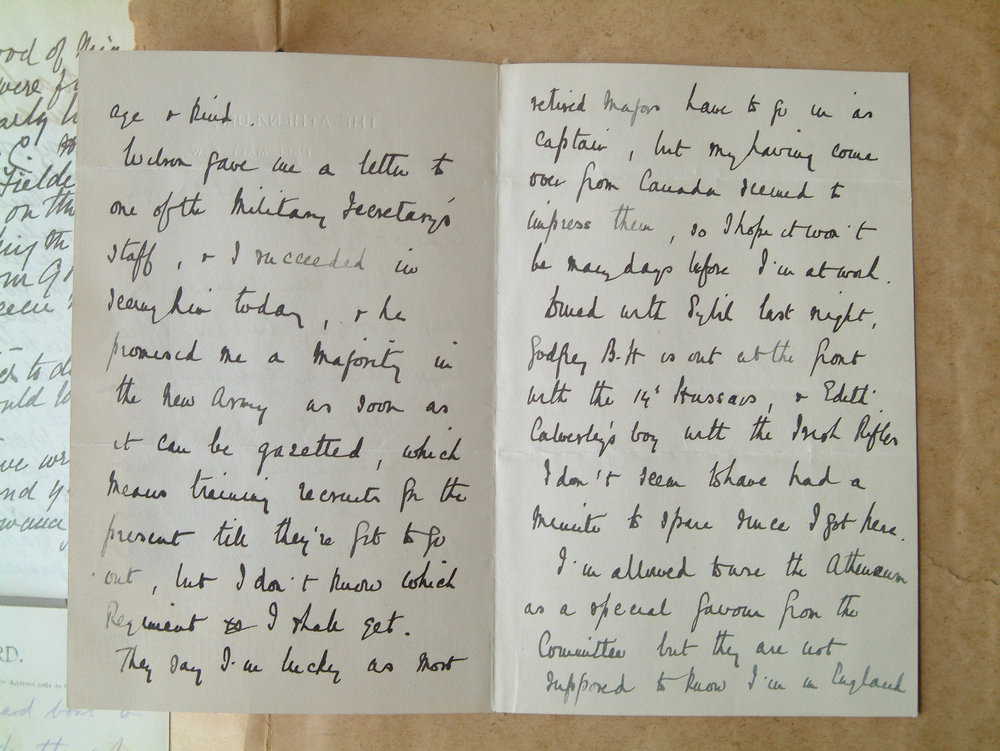 age & kind.
Wilson gave me a letter to
one of the Military Secretary's
staff, & I succeeded in
seeing him today, & he
promised me a Majority in
the New Army as soon as
it can be gazetted, which
means training recruits for the
present till they're fit to go
out, but I don't know which
Regiment I shall get.
They say I'm lucky as most
retired Majors have to go in as
captain, but my having come
over from Canada seemed to
impress them, so I hope it won't
be many days before I'm at work.
Dined with Sybil last night,
Godfrey B-H is out at the front
with the Hussars, & Edith
Calverley's boy with the Irish Rifles
I don't seem to have had a
minute to spare since I got here.
I'm allowed to use the Athenaeum
as a special favour from the
Committee but they are not
supposed to know I'm in England
THE ATHENAEUM
ood of
were
on the
to do
RD.